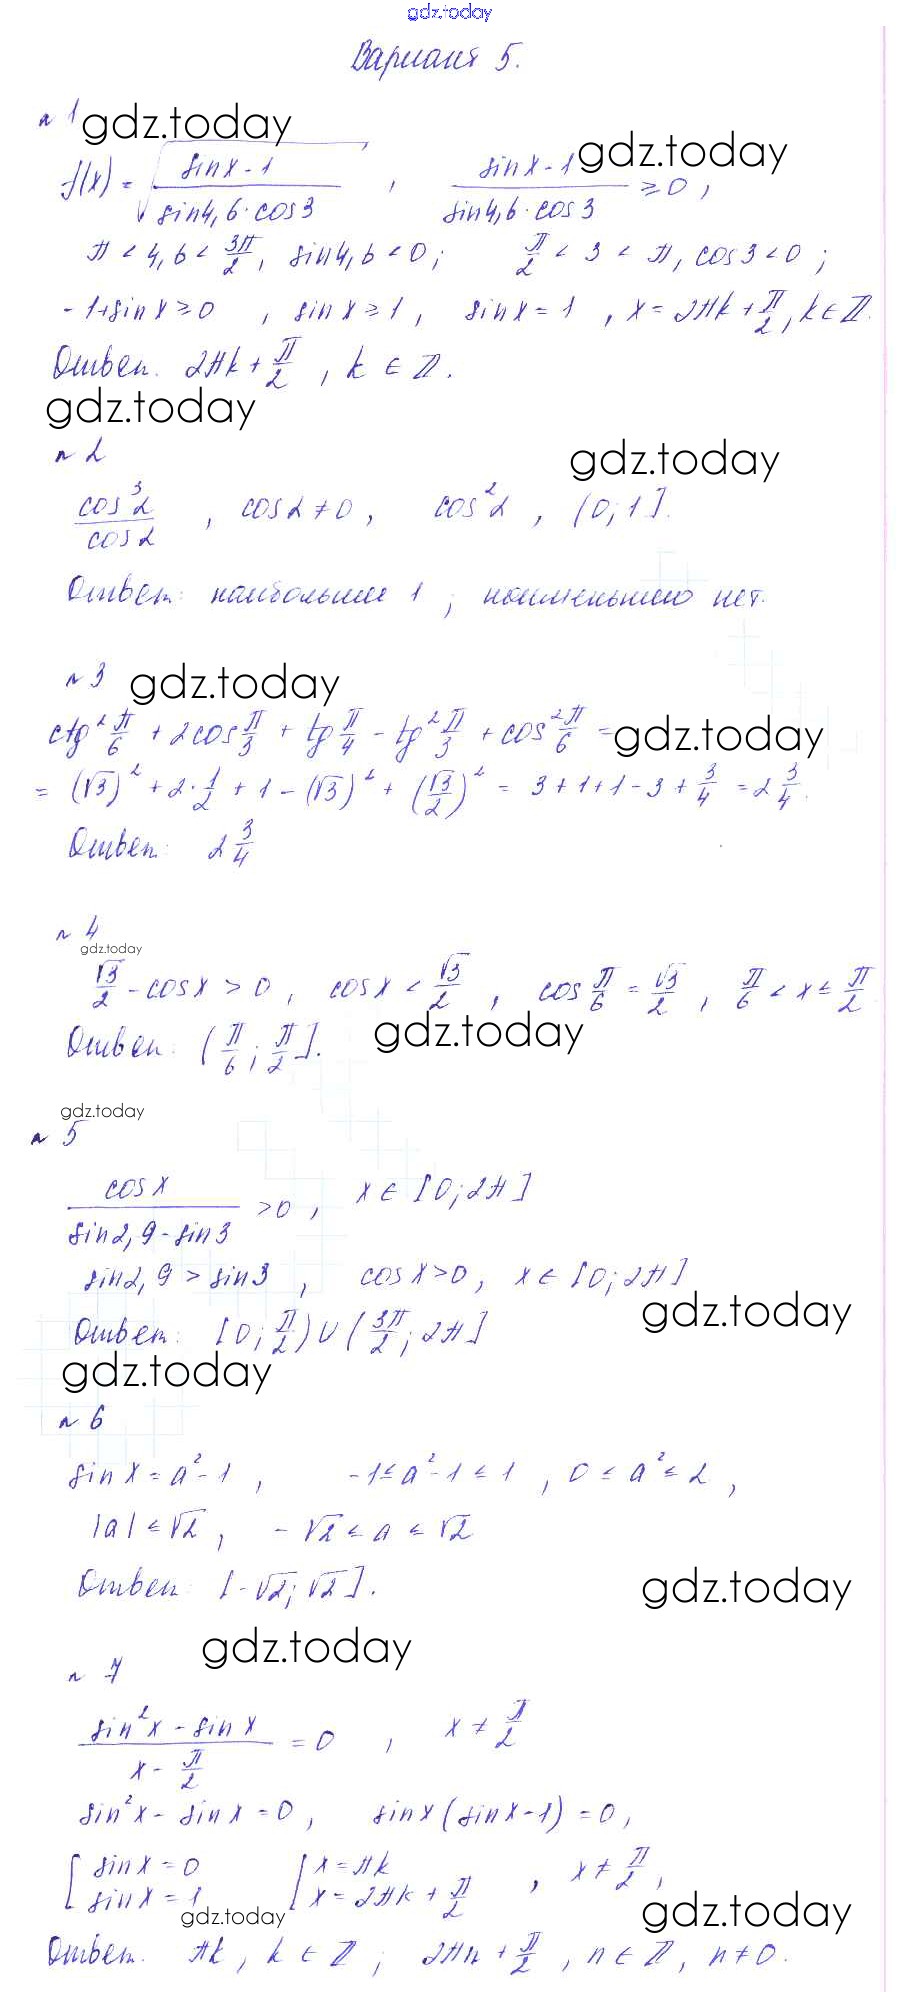 gdz.today
Вариант 5.
№ 1 gdz.today
f(x) = √((sin x - 1)/(sin 4,6 · cos 3)) , (sin x - 1)/(sin 4,6 · cos 3) ≥ 0 , gdz.today
π < 4,6 < 3π/2 , sin 4,6 < 0 ; π/2 < 3 < π , cos 3 < 0 ;
-1 + sin x ≥ 0 , sin x ≥ 1 , sin x = 1 , x = 2πk + π/2 , k ∈ ℤ.
Ответ. 2πk + π/2 , k ∈ ℤ.
gdz.today
№ 2 gdz.today
cos³α/cos α , cos α ≠ 0 , cos²α , (0; 1].
Ответ: наибольшее 1 ; наименьшего нет.
№ 3 gdz.today
ctg² π/6 + 2cos π/3 + tg π/4 - tg² π/3 + cos² π/6 = gdz.today
= (√3)² + 2 · 1/2 + 1 - (√3)² + (√3/2)² = 3 + 1 + 1 - 3 + 3/4 = 2 3/4.
Ответ: 2 3/4
№ 4
gdz.today
√3/2 - cos x > 0 , cos x < √3/2 , cos π/6 = √3/2 , π/6 < x ≤ π/2
Ответ: (π/6 ; π/2]. gdz.today
gdz.today
№ 5
cos x/(sin 2,9 - sin 3) > 0 , x ∈ [0; 2π]
sin 2,9 > sin 3 , cos x > 0 , x ∈ [0; 2π]
gdz.today
Ответ: [0; π/2) ∪ (3π/2 ; 2π]
gdz.today
№ 6
sin x = a² - 1 , -1 ≤ a² - 1 ≤ 1 , 0 ≤ a² ≤ 2 ,
|a| ≤ √2 , -√2 ≤ a ≤ √2
Ответ: [-√2; √2]. gdz.today
gdz.today
№ 7
(sin²x - sin x)/(x - π/2) = 0 , x ≠ π/2
sin²x - sin x = 0 , sin x (sin x - 1) = 0 ,
[ sin x = 0 [ x = πk , x ≠ π/2 ,
sin x = 1 x = 2πk + π/2
gdz.today gdz.today
Ответ. πk , k ∈ ℤ ; 2πn + π/2 , n ∈ ℤ , n ≠ 0.